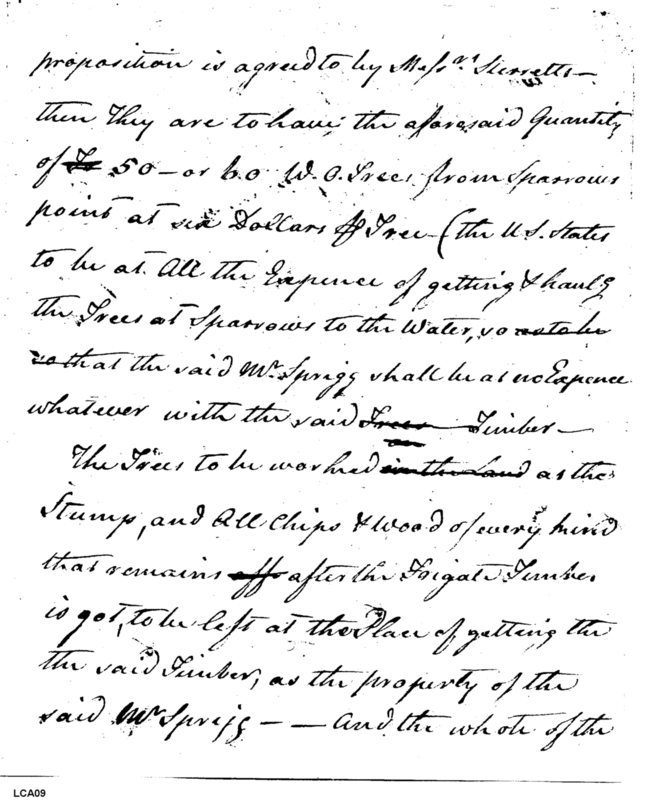 proposition is agreed to by Messrs. Sterretts —
then They are to have, the aforesaid Quantity
of To 50 — or 60 W. O. Trees from Sparrows
point at six Dollars ⅌ Tree — (the U.S. States
to be at All the Expence of getting & haulg
the Trees at Sparrows to the Water, so as to be
so that the said Mr. Sprigg shall be at no Expence
whatever with the said Trees Timber —
The Trees to be worked in the Land as the
Stump, and All Chips & Wood of every kind
that remains off after the Frigate Timber
is got, to be left at the Place of getting the
the said Timber, as the property of the
said Mr Sprigg — — And the whole of the
LCA09